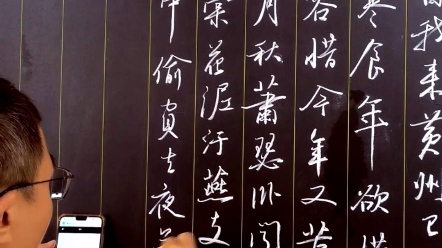 我来黄州已
寒食年欲惜
容惜今年又苦
月秋蕭瑟卧闻
棠花泥污燕支
中偷負去夜